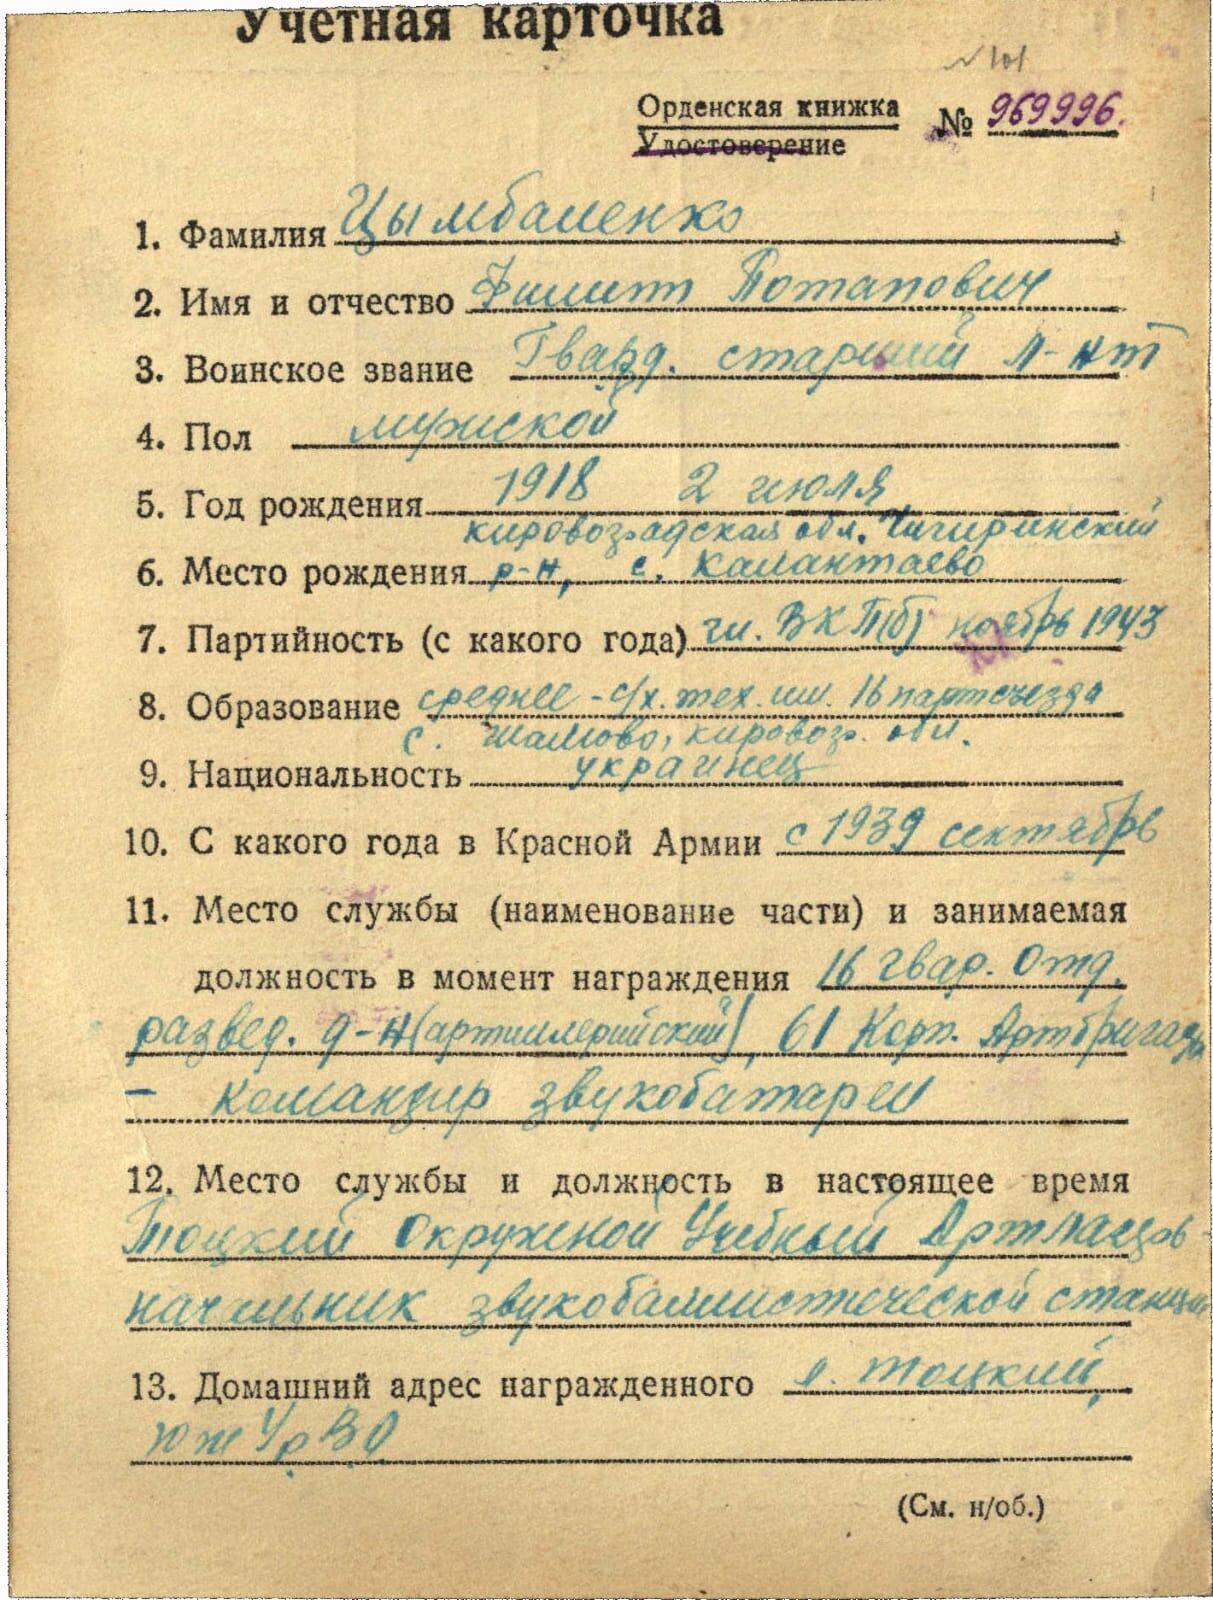 Учетная карточка
№ 101
Орденская книжка № 969996.
Удостоверение
1. Фамилия Цымбаленко
2. Имя и отчество Филипп Потапович
3. Воинское звание Гвард. старший л-нт
4. Пол мужской
5. Год рождения 1918 2 июля
кировоградская обл. Чигиринский
6. Место рождения р-н, с. Калантаево
7. Партийность (с какого года) чл. ВКП(б) ноябрь 1943
8. Образование среднее - с/х. тех. им. 16 партсъезда
с. кировог. обл.
9. Национальность украинец
10. С какого года в Красной Армии с 1939 сентябрь
11. Место службы (наименование части) и занимаемая
должность в момент награждения 16 гвар. Отд.
развед. д-н (артиллерийский), 61 Корп. Артбригады
- командир звукобатареи
12. Место службы и должность в настоящее время
Тоцкий Окружной Учебный Артлагерь -
начальник звукобаллистической станции
13. Домашний адрес награжденного л. Тоцкий,
ЮжУрВО
(См. н/об.)